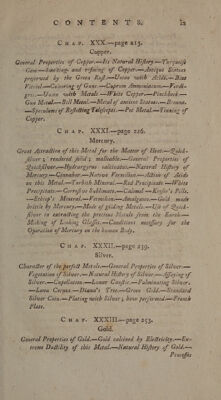 CONTENTS. ix
CHAP. XXX.—page 215.
Copper.
General Properties of Copper.—Its Natural History.—Turquoise
Gem.—Smelting and refining of Copper.—Antique Statues
preserved by the Green Rust.—Union with Acids.—Blue
Vitriol.—Colouring of Guns.—Cuprum Ammoniacum.—Verdi-
gris.—Union with Metals.—White Copper.—Pinchbeck.—
Gun Metal.—Bell Metal.—Metal of ancient Statues.—Bronze.
—Speculums of Reflecting Telescopes.—Pot Metal.—Tinning of
Copper.
CHAP. XXXI.—page 226.
Mercury.
Great Attraction of this Metal for the Matter of Heat.—Quick-
silver; rendered solid; malleable.—General Properties of
Quicksilver.—Hydrargyrus calcinatus.—Natural History of
Mercury.—Cinnabar.—Native Vermilion.—Action of Acids
on this Metal.—Turbith Mineral.—Red Precipitate.—White
Precipitate.—Corrosive Sublimate.—Calomel.—Keyser's Pills.
—Ethiop's Mineral.—Vermilion.—Amalgams.—Gold made
brittle by Mercury.—Mode of gilding Metals.—Use of Quick-
silver in extracting the precious Metals from the Earth.—
Making of Looking Glasses.—Conditions necessary for the
Operation of Mercury on the human Body.
CHAP. XXXII.—page 239.
Silver.
Character of the perfect Metals.—General Properties of Silver.—
Vegetation of Silver.—Natural History of Silver.—Assaying of
Silver.—Cupellation.—Lunar Caustic.—Fulminating Silver.
—Luna Cornea.—Diana's Tree.—Green Gold.—Standard
Silver Coin.—Plating with Silver; how performed.—French
Plate.
CHAP. XXXIII.—page 253.
Gold.
General Properties of Gold.—Gold calcined by Electricity.—Ex-
treme Ductility of this Metal.—Natural History of Gold.—
Processes